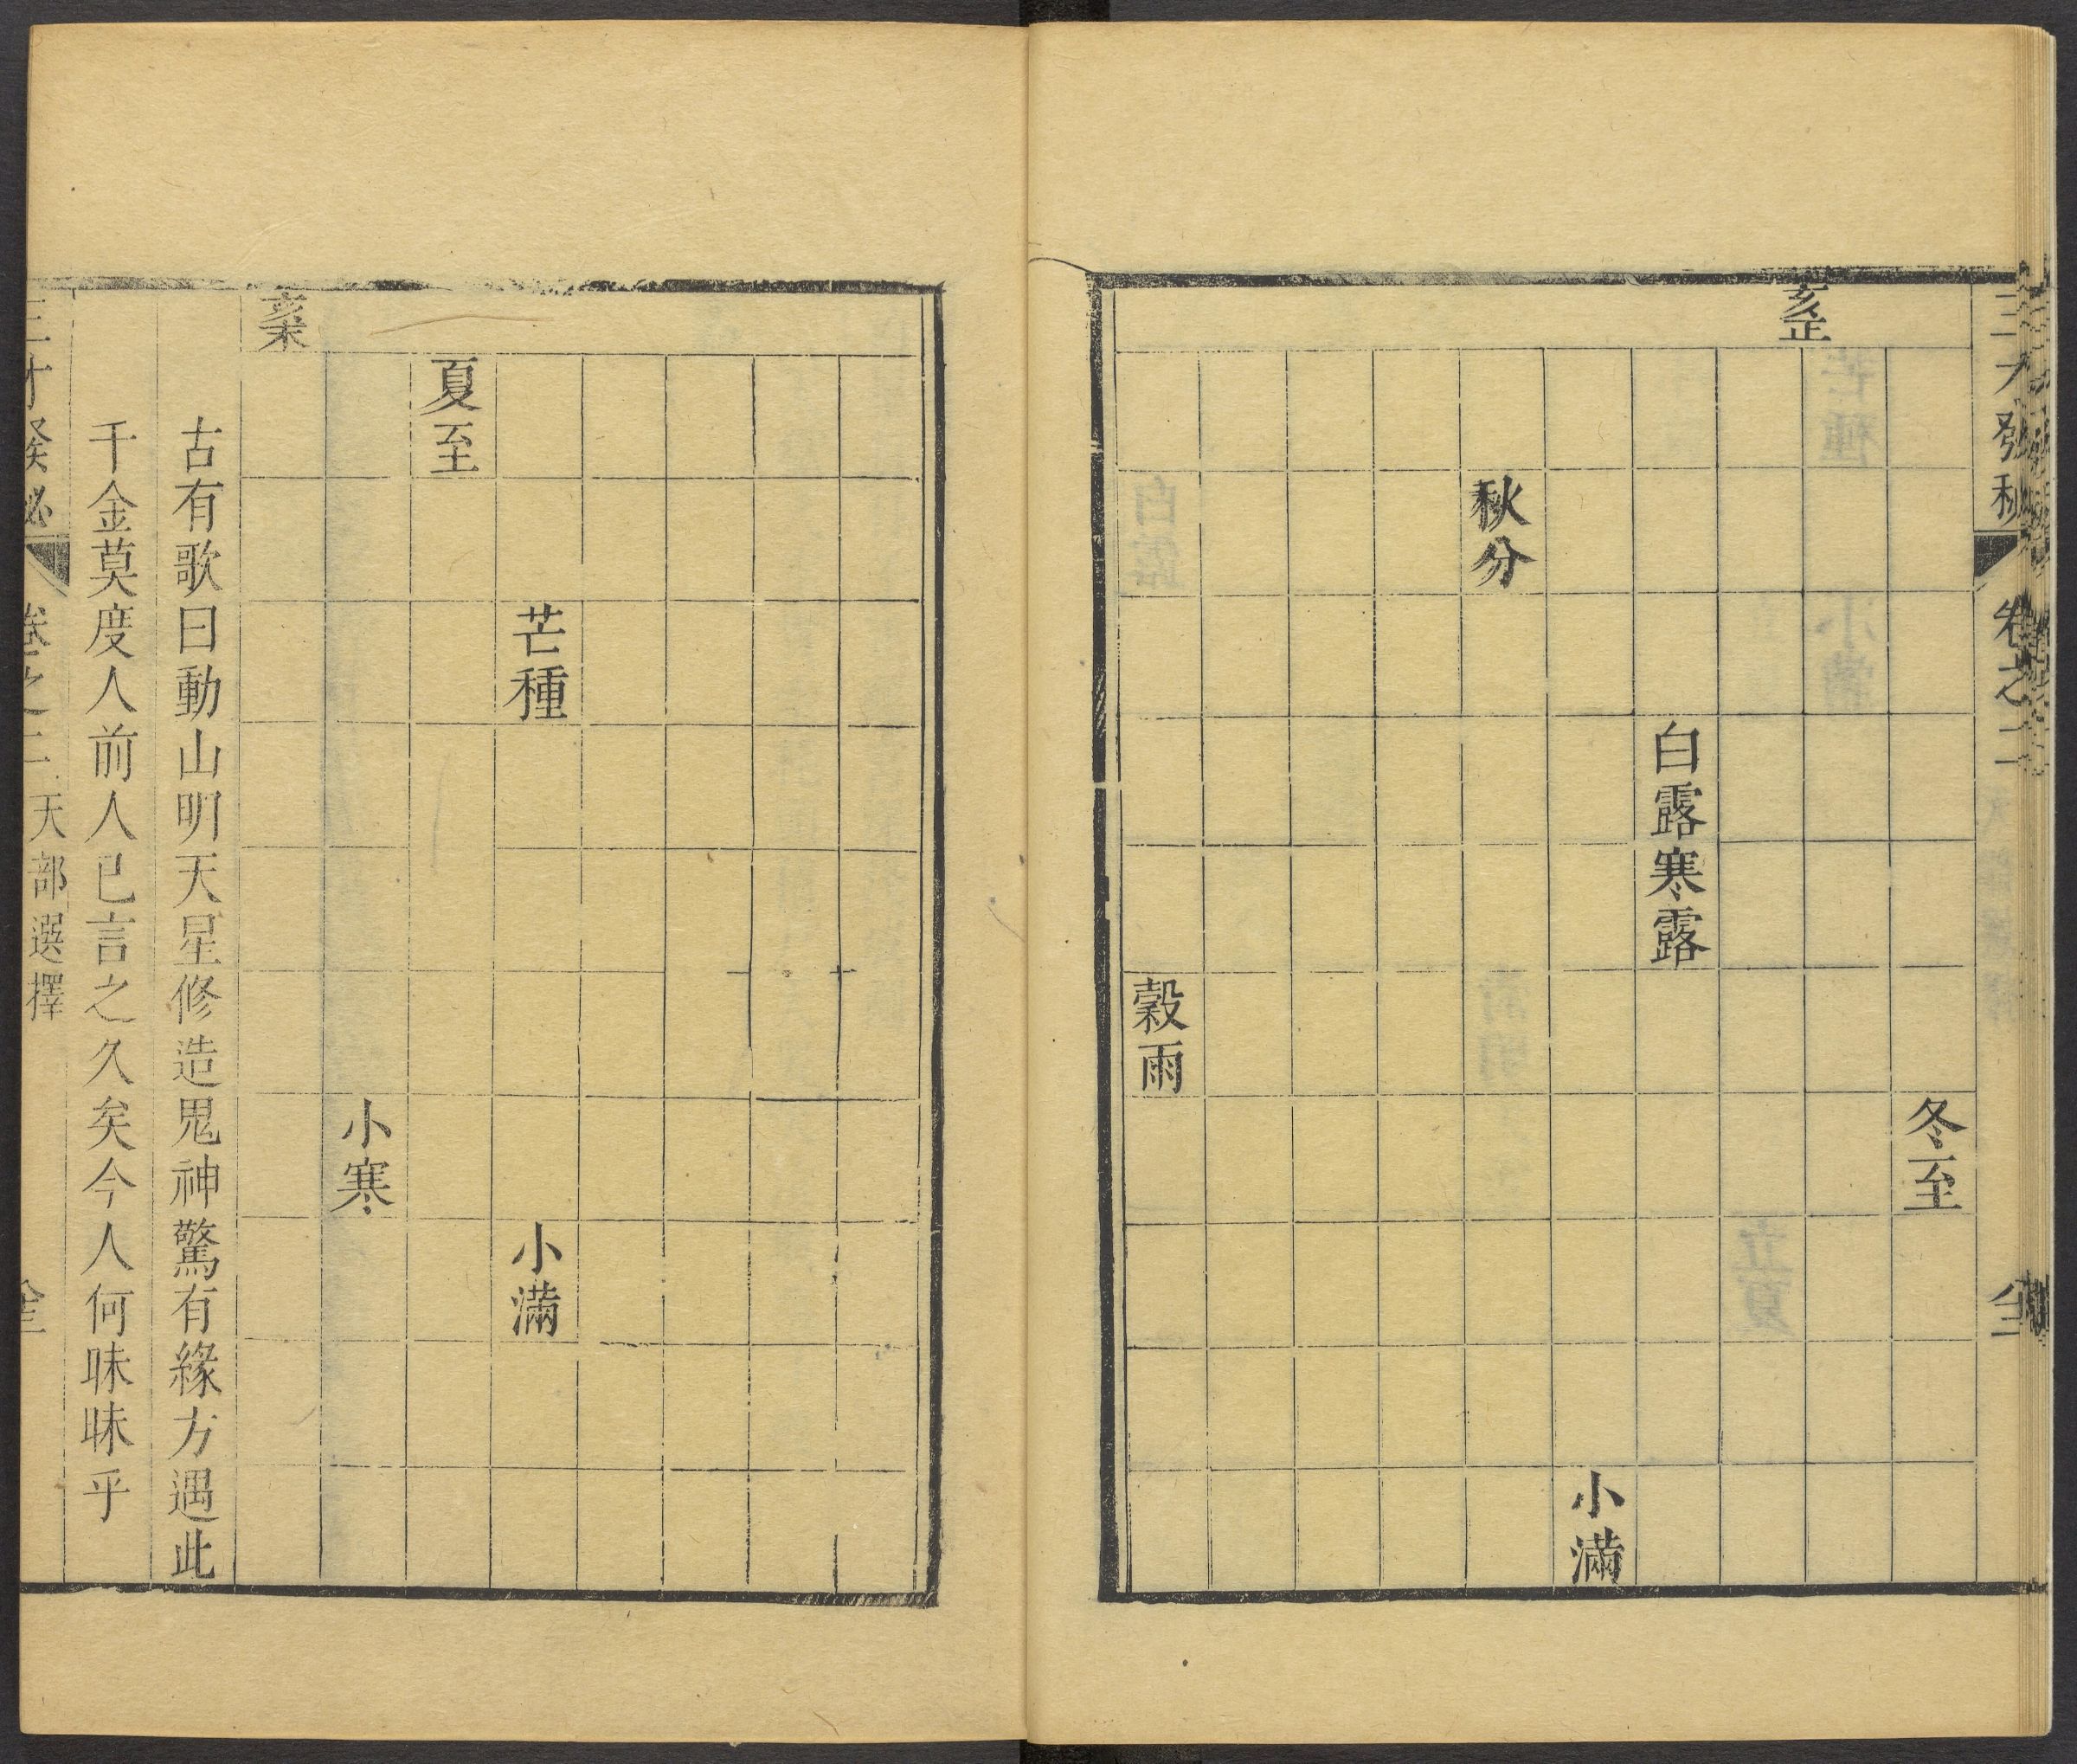 亥正
冬至
白露寒露
小滿
秋分
穀雨
芒種
小滿
夏至
小寒
亥末
古有歌曰動山明天星修造鬼神驚有緣方遇此
千金莫度人前人已言之久矣今人何昧昧乎
三才發秘 卷之二 天部選擇